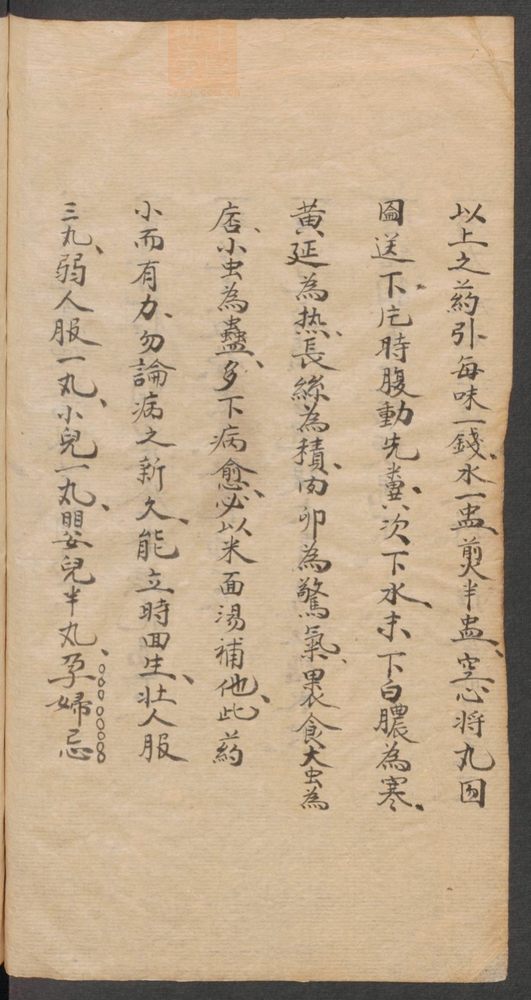 以上之葯引每味一錢、水一盅、煎半盅、空心將丸囫
圇送下、疕時腹動先糞、次下水、末下白膿為寒、
黄延為热、長絲為積、肉卵為驚氣、裹食大虫為
店、小虫為蠱、多下病愈、必以米面湯補他、此葯
小而有力、勿論病之新久、能立時回生、壮人服
三丸、弱人服一丸、小兒一丸、嬰兒半丸、孕婦忌